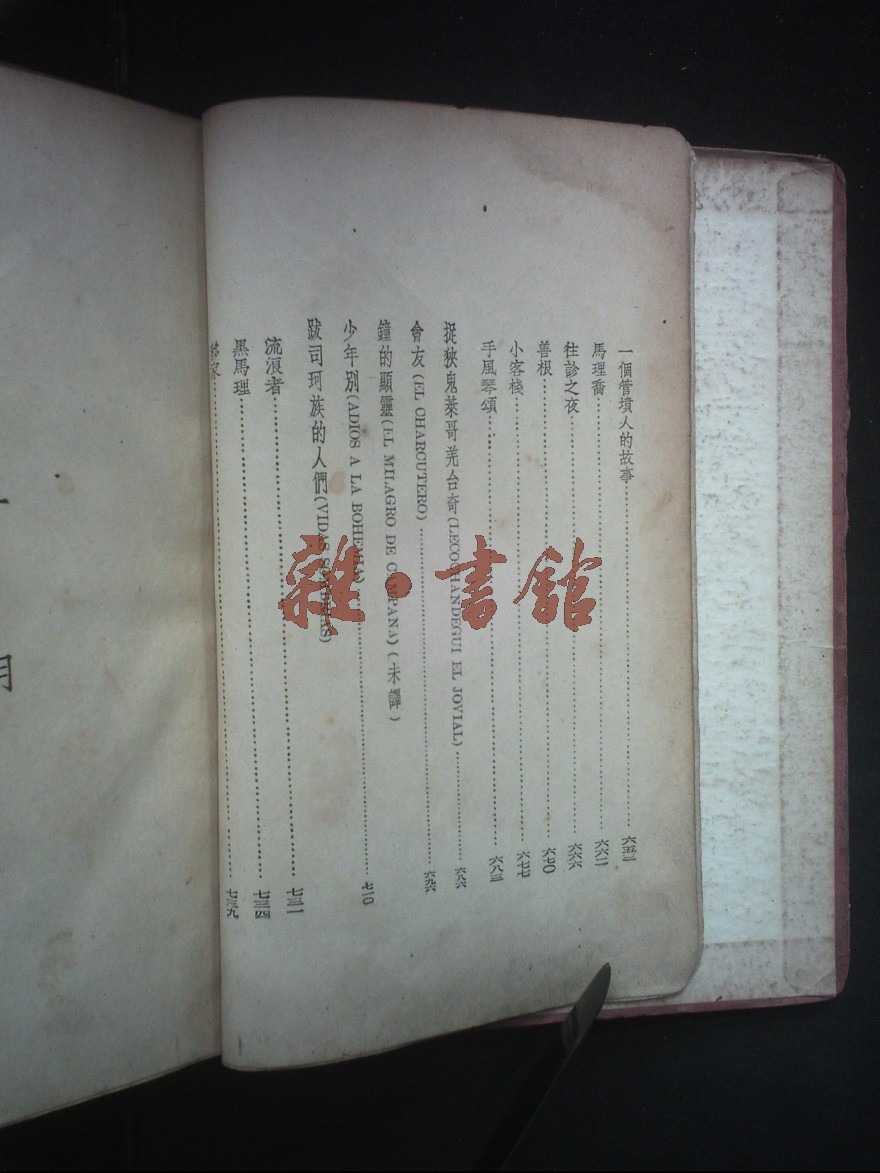 一個管墳人的故事……六五三
馬理喬……六六二
往診之夜……六六六
善根……六七〇
小客棧……六七七
手風琴頌……六八三
捉狹鬼萊哥羌台奇(LECOCHANDEGUI EL JOVIAL)……六八六
會友(EL CHARCUTERO)……六九六
鐘的顯靈(EL MILAGRO DE CAMPANA)(未譯)
少年別(ADIOS A LA BOHEMIA)……七一〇
跋司珂族的人們(VIDAS SOMBRIAS)
流浪者……七三一
黑馬理……七三四
移家……七三九
雜·書館
月